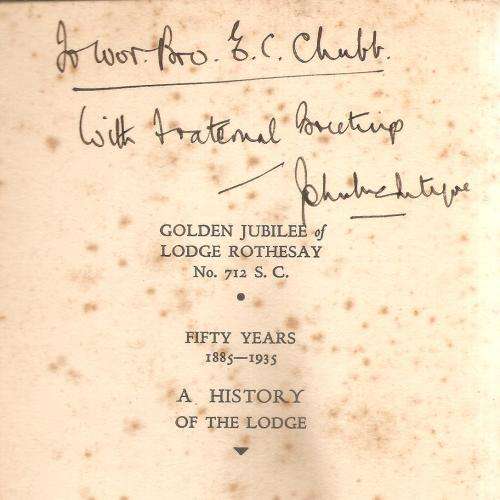 To Wor. Bro. E. C. Chubb.
With Fraternal Greetings
John McIntyre
GOLDEN JUBILEE of
LODGE ROTHESAY
No. 712 S. C.
FIFTY YEARS
1885—1935
A HISTORY
OF THE LODGE